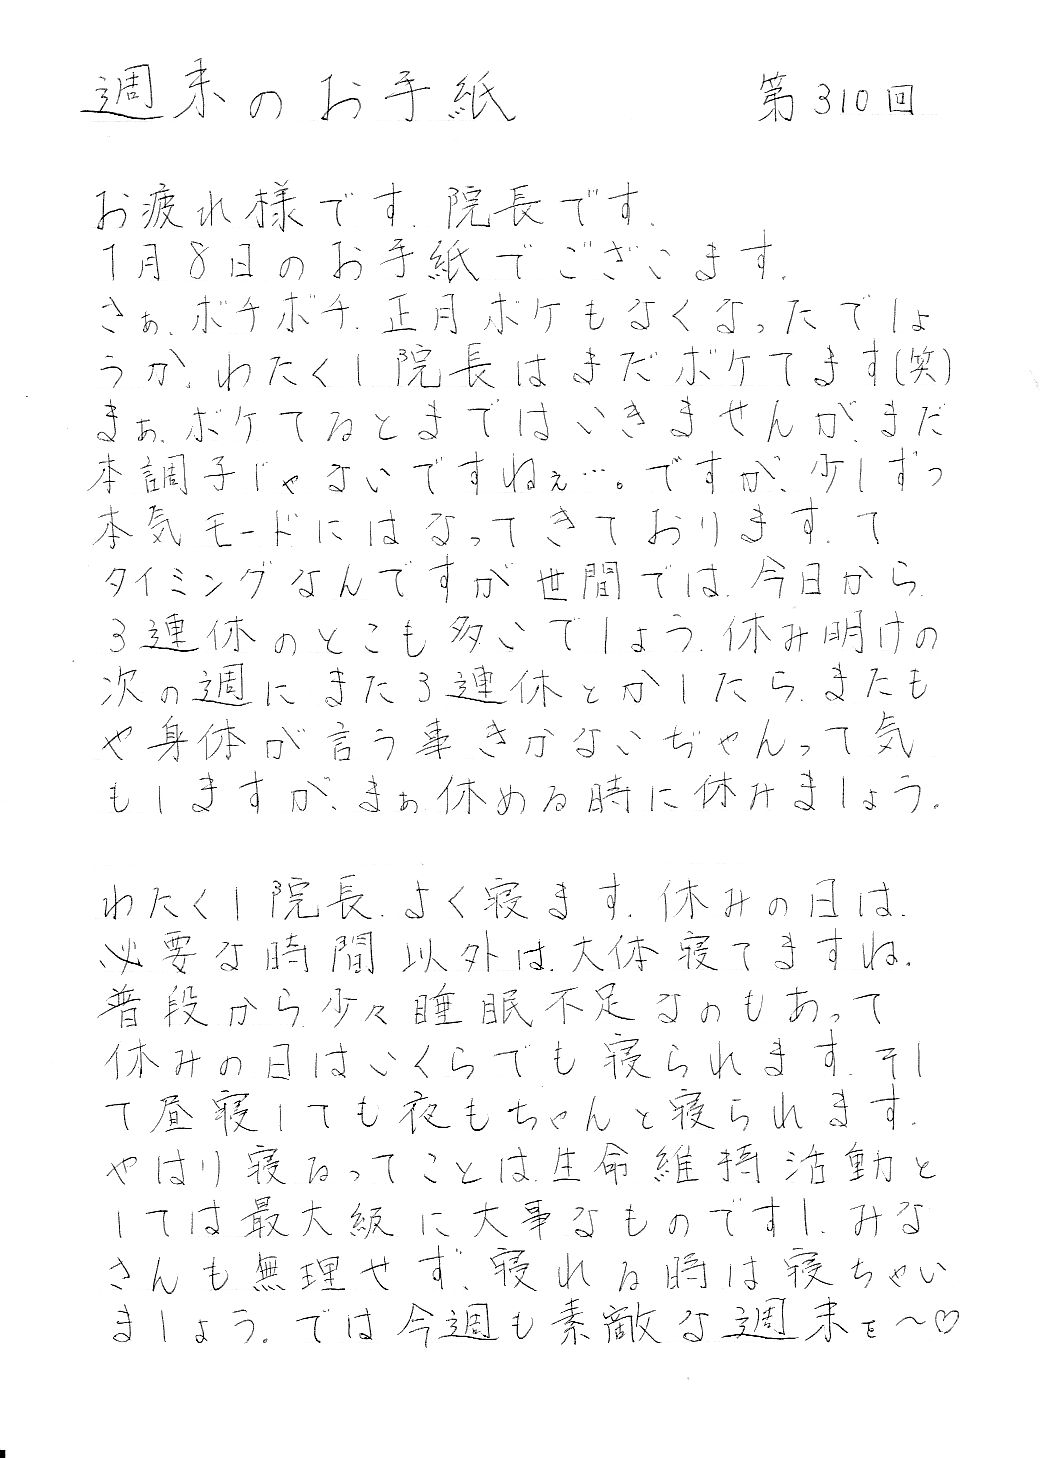 週末のお手紙 第310回
お疲れ様です。院長です。
1月8日のお手紙でございます。
さぁ、ボチボチ、正月ボケもなくなったでしょ
うか。わたくし院長はまだボケてます(笑)
まぁ、ボケてるとまではいきませんが、まだ
本調子じゃないですねぇ…。ですが、少しずつ
本気モードにはなってきております。て
タイミングなんですが世間では、今日から、
3連休のとこも多いでしょう。休み明けの
次の週にまた3連休とかしたら、またも
や身体が言う事きかないぢゃんって気
もしますが、まぁ、休める時に休みましょう。
わたくし院長、よく寝ます。休みの日は、
必要な時間以外は、大体寝てますね。
普段から少々睡眠不足なのもあって
休みの日はいくらでも寝られます。そし
て昼寝しても夜もちゃんと寝られます。
やはり寝るってことは、生命維持活動と
しては最大級に大事なものですし、みな
さんも無理せず、寝れる時は寝ちゃい
ましょう。では今週も素敵な週末を〜♡